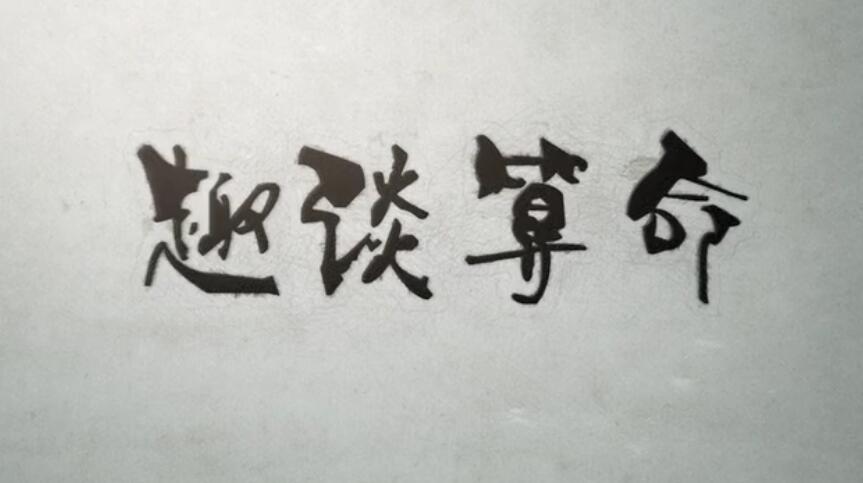 趣谈算命